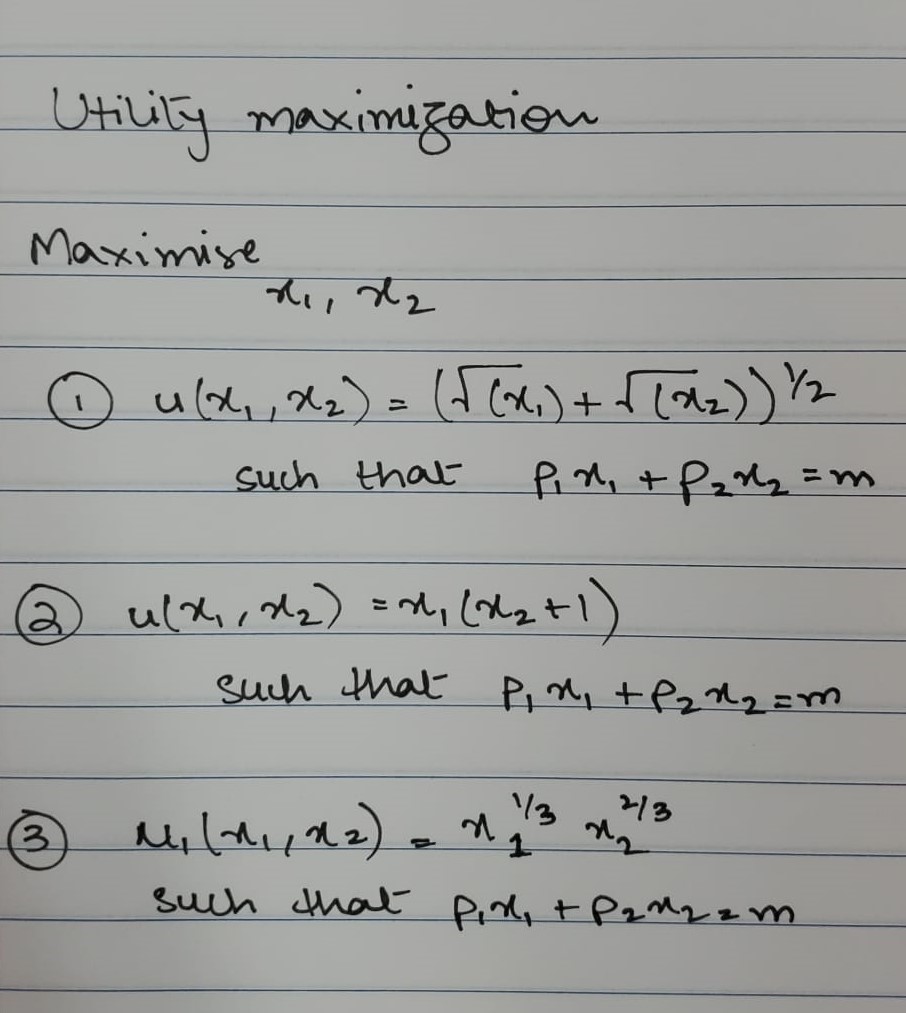 Utility maximization
Maximise
x₁, x₂
① u(x₁, x₂) = (√(x₁) + √(x₂))^1/2
such that p₁x₁ + p₂x₂ = m
② u(x₁, x₂) = x₁(x₂+1)
such that p₁x₁ + p₂x₂ = m
③ u₁(x₁, x₂) = x₁^1/3 x₂^2/3
such that p₁x₁ + p₂x₂ = m